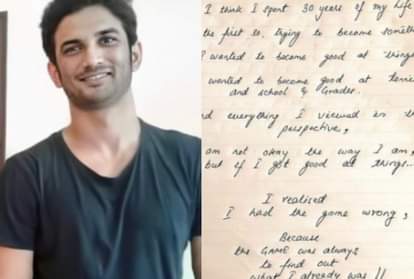 I think I spent 30 years of my life
the first 30, trying to become someth
I wanted to become good at things
wanted to become good at tenni
and school & Grades.
nd everything I viewed in th
perspective,
am not okay the way I am,
but if I got good at things...
I realised
I had the game wrong,
Because
the GAME was always
to find out
what I already was !!